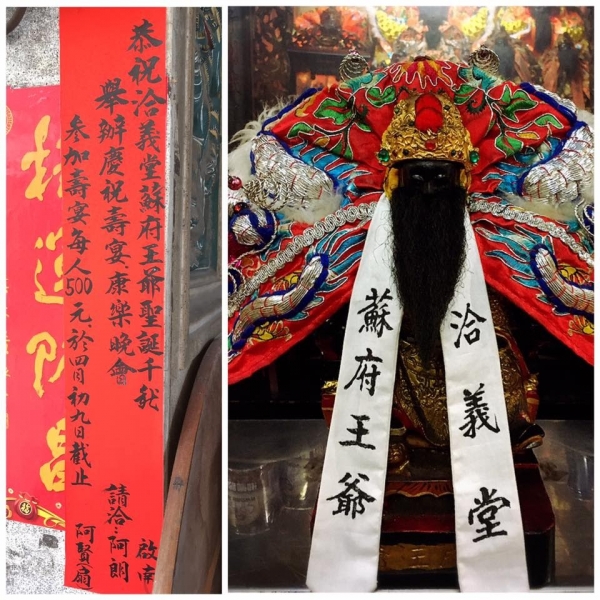 恭祝洽義堂蘇府王爺聖誕千秋
舉辦慶祝壽宴、康樂晚會
參加壽宴每人500元、於四月初九日截止
啟南
請洽：阿朗
阿賢扇
洽義堂
蘇府王爺